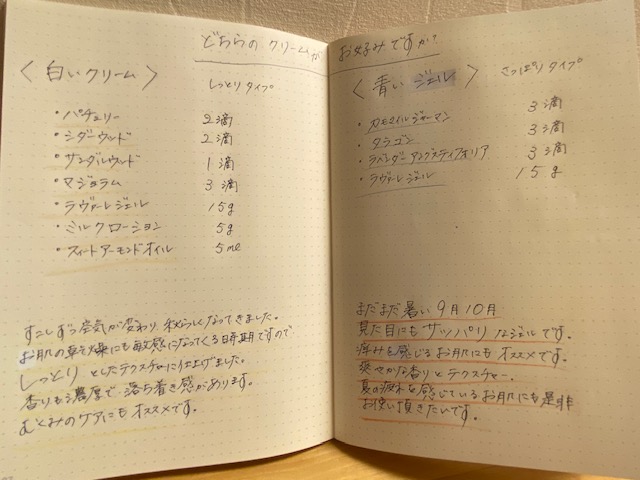 どちらの クリームが お好みですか?
〈 白いクリーム 〉 しっとりタイプ
・パチュリー 2滴
・シダーウッド 2滴
・サンダルウッド 1滴
・マジョラム 3滴
・ラヴァーレジェル 15g
・ミルクローション 5g
・スィートアーモンドオイル 5ml
すこしずつ空気が変わり、秋らしくなってきました。
お肌の乾燥にも敏感になってくる時期ですので
しっとり としたテクスチャーに仕上げました。
香りも濃厚で、落ち着き感があります。
むくみのケアにもオススメです。
〈 青い ジェル 〉 さっぱりタイプ
・カモマイルジャーマン 3滴
・タラゴン 3滴
・ラベンダーアングスティフォリア 3滴
・ラヴァーレジェル 15g
まだまだ暑い 9月10月
見た目にもサッパリなジェルです。
痒みを感じるお肌にもオススメです。
爽やかな香りとテクスチャー、
夏の疲れを感じているお肌にも是非
お使い頂きたいです。